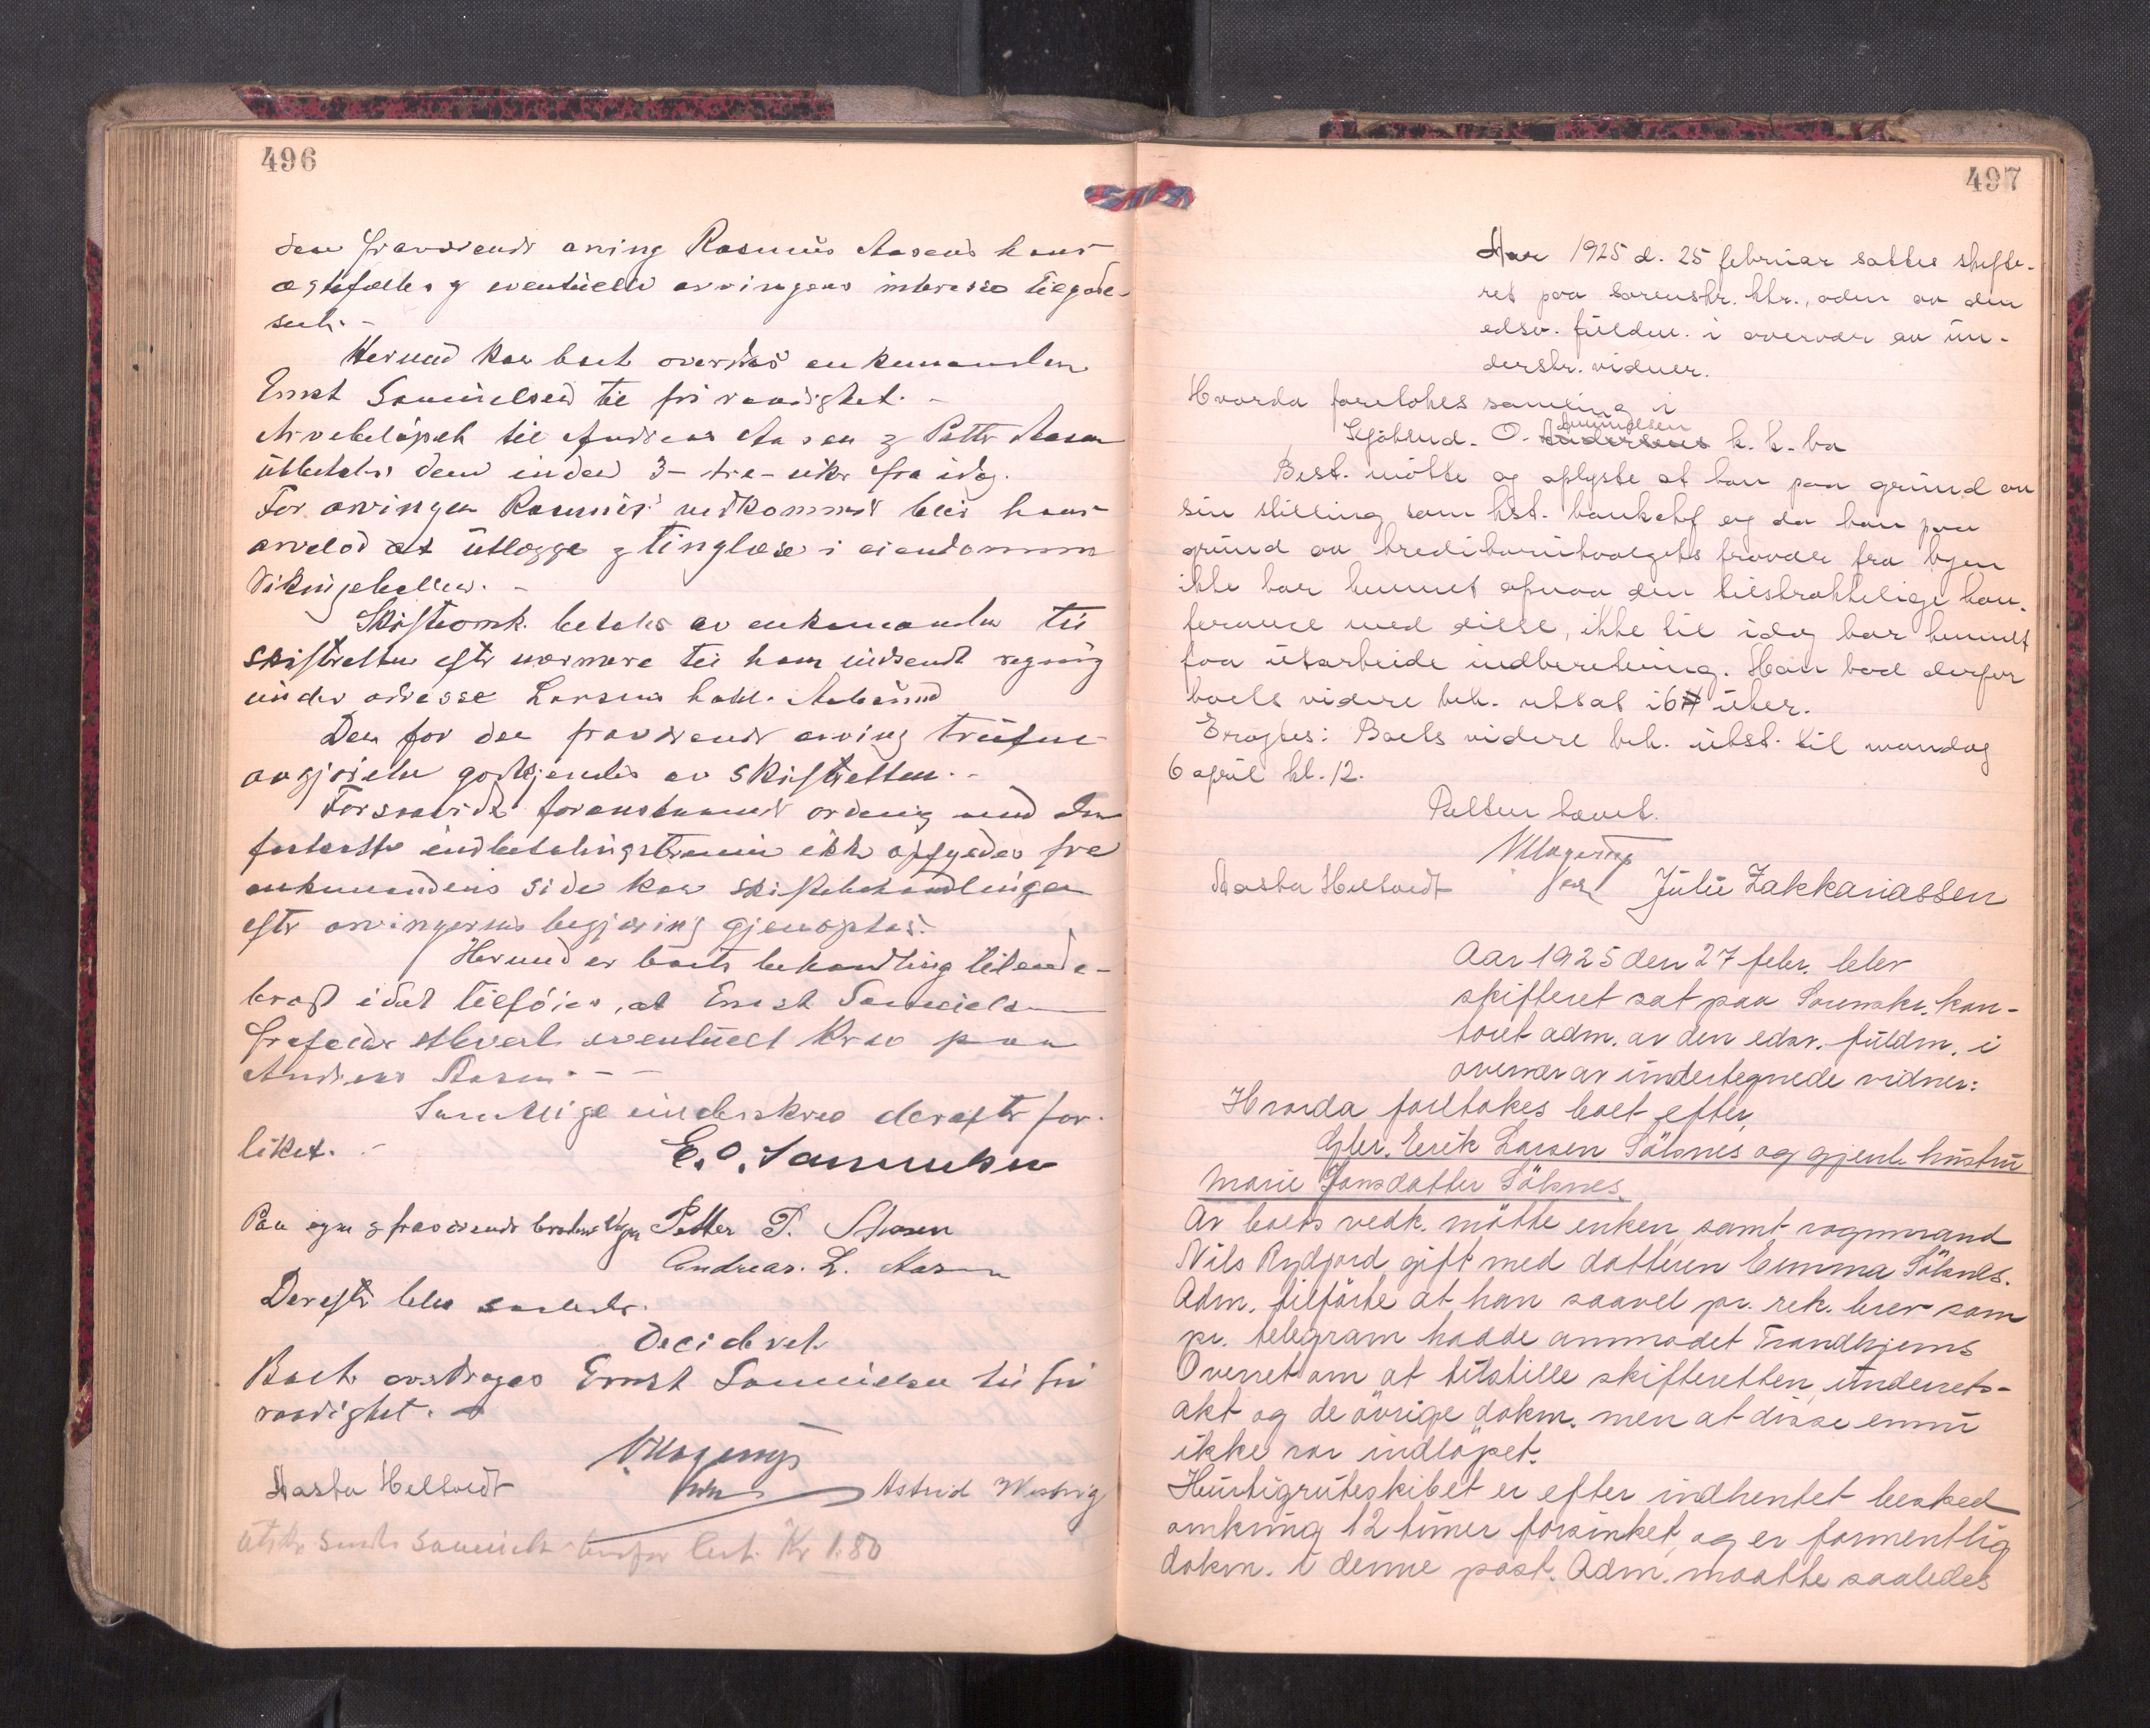 496
den fraværende arving Rasmus Aasens hans
ægtefælles og eventuelle arvingers interesse tilgode-
seet. -
Hermed kan boet overdras enkemanden
Ernst Samuelsen til fri raadighet. -
Arvebeløpet til Andreas Aasen og Petter Aasen
utbetales dem inden 3 - tre - uker fra idag.
For arvingen Rasmus' vedkommende blir hans
arvelod at utlægge og tinglæse i eiendommen
Skifteomk. betales av enkemanden til
skifteretten efter nærmere til ham indsendt regning
under adresse Larsens hotel. Aalesund
Den for den fraværende arving trufne
avgjørelse godkjendes av skifteretten. -
Forsaavidt foranstaaende ordning med den
fastsatte indbetalingstermin ikke opfyldes fra
enkemandens side kan skiftebehandlingen
efter arvingernes begjæring gjenoptas.
Hermed er boets behandling tilende-
bragt idet tilføies, at Ernst Samuelsen
frafalder ethvert eventuelt krav paa
Andreas Aasen. - -
Samtlige underskrev derefter for-
liket. -
E. O. Samuelsen
Paa egne og fraværende brors vegne Petter T. Aasen
Andreas. L. Aasen
Derefter blev saaledes
Decidert.
Boet overdrages Ernst Samuelsen til fri
raadighet.
Aasta Heltvedt
Astrid
utskr. sendt Samuelsen Kr 1.80
497
Aar 1925 d. 25 februar sattes skifte-
ret paa sorenskr. ktr., adm av den
edsv. fuldm. i overvær av un-
derskr. vidner.
Hvorda foretokes samling i
Samuelsen
O. Andersens k. k. bo
Best. møtte og oplyste at han paa grund av
sin stilling som kst. bankchef og da han paa
grund av kreditorutvalgets fravær fra byen
ikke har kunnet opnaa den tilstrækkelige kon-
ferance med disse, ikke til idag har kunnet
faa utarbeide indberetning. Han bad derfor
boets videre beh. utsat i 6 uker.
Eragtes: Boets videre beh. utst. til mandag
6 april kl. 12.
Retten hævet.
Aasta Heltvedt
Julie Zakkariassen
Aar 1925 den 27 febr. blev
skifteret sat paa Sorenskr. kon-
toret adm. av den edsv. fuldm. i
overvær av undertegnede vidner:
Hvorda foretokes boet efter
Gbr. Erik Larsen Søknes og gjenl. hustru
Marie Jonsdatter Søknes.
Av boets vedk. møtte enken, samt vognmand
Nils Rydjord gift med datteren Emma Søknes.
Adm. tilførte at han saavel pr. rek. brev som
pr. telegram hadde anmodet Trondhjems
Overret om at tilstille skifteretten underrets-
akt og de øvrige dokm. men at disse ennu
ikke var indløpet.
Hurtigruteskibet er efter indhentet besked
omkring 12 timer forsinket, og er formentlig
dokm. i denne post. Adm. maatte saaledes